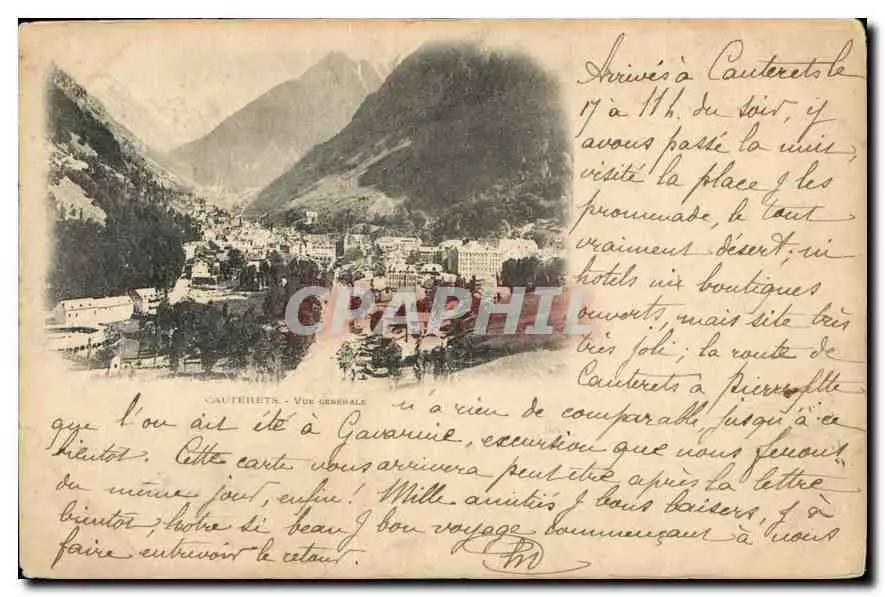 Arrivés à Cauterets le
17 à 11 h. du soir, y
avons passé la nuit,
visité la place & les
promenade, le tout
vraiment désert, ni
hotels ni boutiques
ouverts, mais site très
très joli; la route de
Cauterets à Pierrefitte
n'a rien de comparable, jusqu'à ce
que l'on ait été à Gavarnie, excursion que nous ferons
bientot. Cette carte vous arrivera peut-être après la lettre
du même jour, enfin! Mille amitiés & bons baisers, & à
bientot, notre si beau & bon voyage commençant à nous
faire entrevoir le retour.
CAUTERETS. - VUE GÉNÉRALE
CPAPHIL